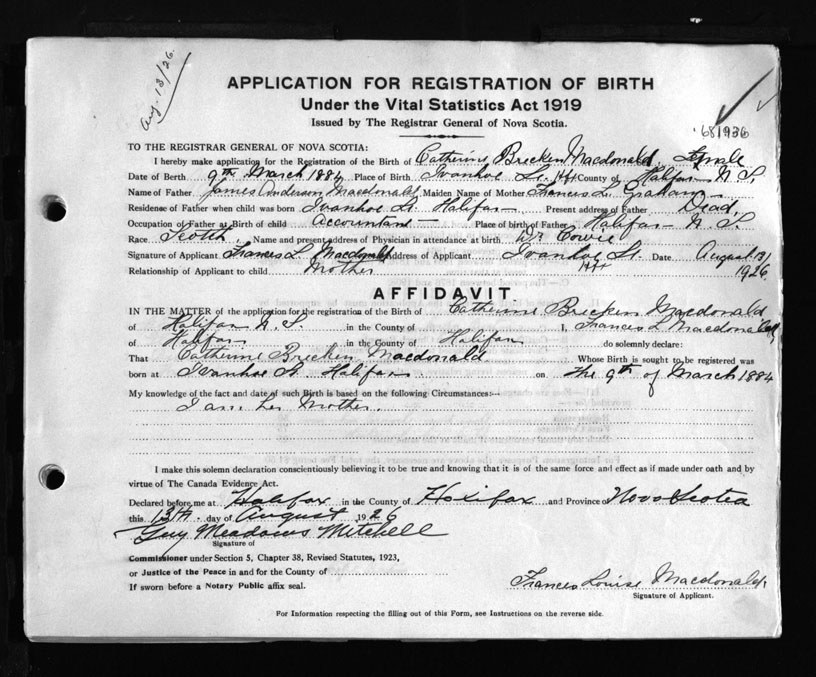 Aug. 13/26.
APPLICATION FOR REGISTRATION OF BIRTH
Under the Vital Statistics Act 1919
Issued by The Registrar General of Nova Scotia.
681936
TO THE REGISTRAR GENERAL OF NOVA SCOTIA:
I hereby make application for the Registration of the Birth of Catherine Brecken Macdonald, Female
Date of Birth 9th March 1884 Place of Birth Ivanhoe St. Hfx County of Halifax N.S.
Name of Father James Anderson Macdonald Maiden Name of Mother Frances L. Graham
Residence of Father when child was born Ivanhoe St. Halifax Present address of Father Dead.
Occupation of Father at Birth of child Accountant Place of birth of Father Halifax N.S.
Race Scotch. Name and present address of Physician in attendance at birth Dr Cowie
Signature of Applicant Frances L. Macdonald Address of Applicant Ivanhoe St. Hfx Date August 13/1926
Relationship of Applicant to child Mother
AFFIDAVIT.
IN THE MATTER of the application for the registration of the Birth of Catherine Brecken Macdonald
of Halifax N.S. in the County of I, Frances L. Macdonald
of Halifax in the County of Halifax do solemnly declare:
That Catherine Brecken Macdonald Whose Birth is sought to be registered was
born at Ivanhoe St. Halifax on the 9th of March 1884
My knowledge of the fact and date of such Birth is based on the following Circumstances:—
I am her Mother.
I make this solemn declaration conscientiously believing it to be true and knowing that it is of the same force and effect as if made under oath and by
virtue of The Canada Evidence Act.
Declared before me at Halifax in the County of Halifax and Province of Nova Scotia
this 13th day of August 1926
Guy Meadows Mitchell
Signature of
Commissioner under Section 5, Chapter 38, Revised Statutes, 1923,
or Justice of the Peace in and for the County of
If sworn before a Notary Public affix seal.
Frances Louise Macdonald.
Signature of Applicant.
For Information respecting the filling out of this Form, see Instructions on the reverse side.